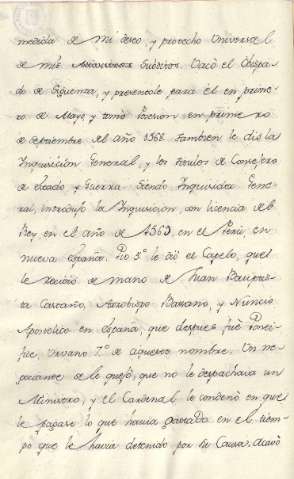 medida de mi deseo, y provecho Universal
de mis Subditos. Vacó el Obispado
de Siguenza, y presentole para el en prime-
ro de Mayo y tomó Posesion en primero
de Septiembre del año 1568. Tambien le dió la
Inquisicion General, y los Titulos de Consejero
de Estado, y Guerra. Siendo Inquisidor Gene-
ral, introdujo la Inquisicion, con licencia del
Rey, en el año de 1569. en el Perú, en
nueva España. Pio 5º le dió el Capelo, que
le recibio de mano de Juan Bauptis-
ta Castaño, Arzobispo Rosano, y Nuncio
Apostolico en España, que despues fue Ponti-
fice, Urvano 7º de aqueste nombre. Un ne-
gociante se le quejó, que no le despachava un
Ministro, y el Cardenal le condenó en que
le pagase lo que havia gastado en el tiem-
po que le havia detenido por su Causa. Acavó